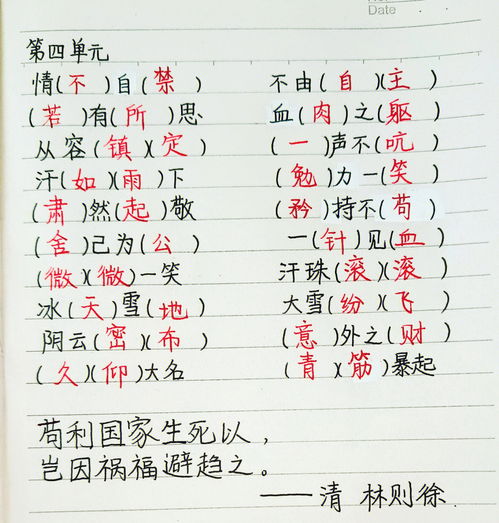 Date
第四单元
情(不)自(禁) 不由(自)(主)
(若)有(所)思 血(肉)之(躯)
从容(镇)(定) (一)声不(吭)
汗(如)(雨)下 (勉)力一(笑)
(肃)然(起)敬 (矜)持不(苟)
(舍)己为(公) 一(针)见(血)
(微)(微)一笑 汗珠(滚)(滚)
冰(天)雪(地) 大雪(纷)(飞)
阴云(密)(布) (意)外之(财)
(久)(仰)大名 (青)(筋)暴起
苟利国家生死以，
岂因祸福避趋之。
——清 林则徐